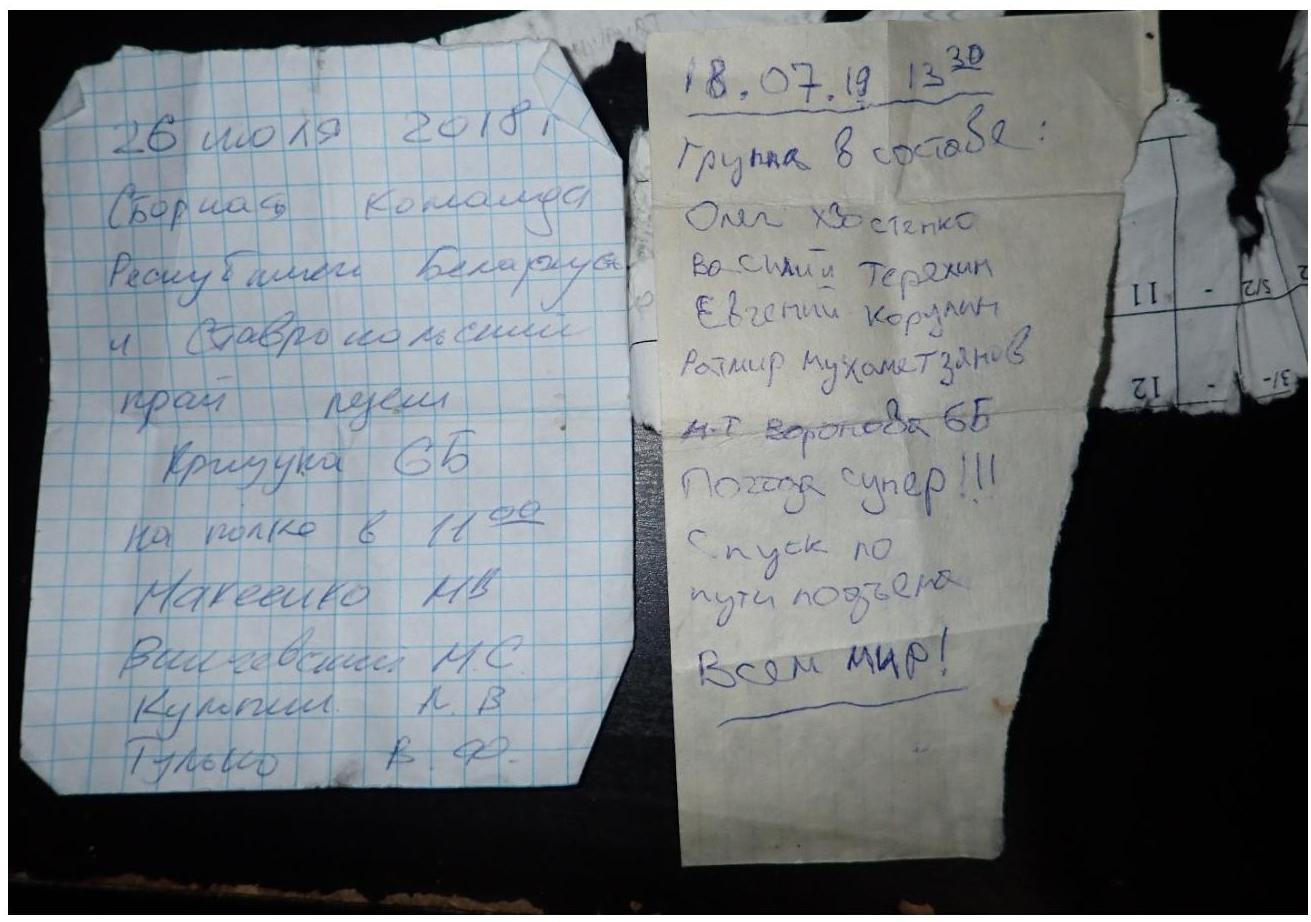 26 июля 2018г
Сборная команда
Республики Беларусь
и Ставропольский
край лезем
Крицука 6Б
на полке в 11 00
Макеенко МВ
Вишневский М.С.
Культин А. В
Гулько В. Ф.
18.07.19 13 30
Группа в составе:
Олег Хвостенко
Василий Терехин
Евгений Корулин
Ратмир Мухаметзянов
м-т Воронова 6Б
Погода супер!!!
Спуск по
пути подъема
Всем мир!
11 - 5/2
12 - 3/-